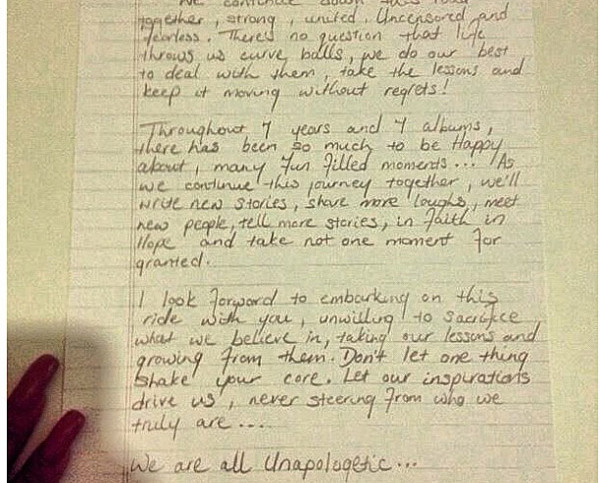 We continue down this road
together, strong, united. Uncensored and
fearless. There's no question that life
throws us curve balls, we do our best
to deal with them, take the lessons and
keep it moving without regrets!
Throughout 7 years and 7 albums,
there has been so much to be Happy
about, many fun filled moments... As
we continue this journey together, we'll
write new stories, share more laughs, meet
new people, tell more stories, in faith in
Hope and take not one moment for
granted.
I look forward to embarking on this
ride with you, unwilling to sacrifice
what we believe in, taking our lessons and
growing from them. Don't let one thing
shake your core. Let our inspirations
drive us, never steering from who we
truly are....
We are all Unapologetic...